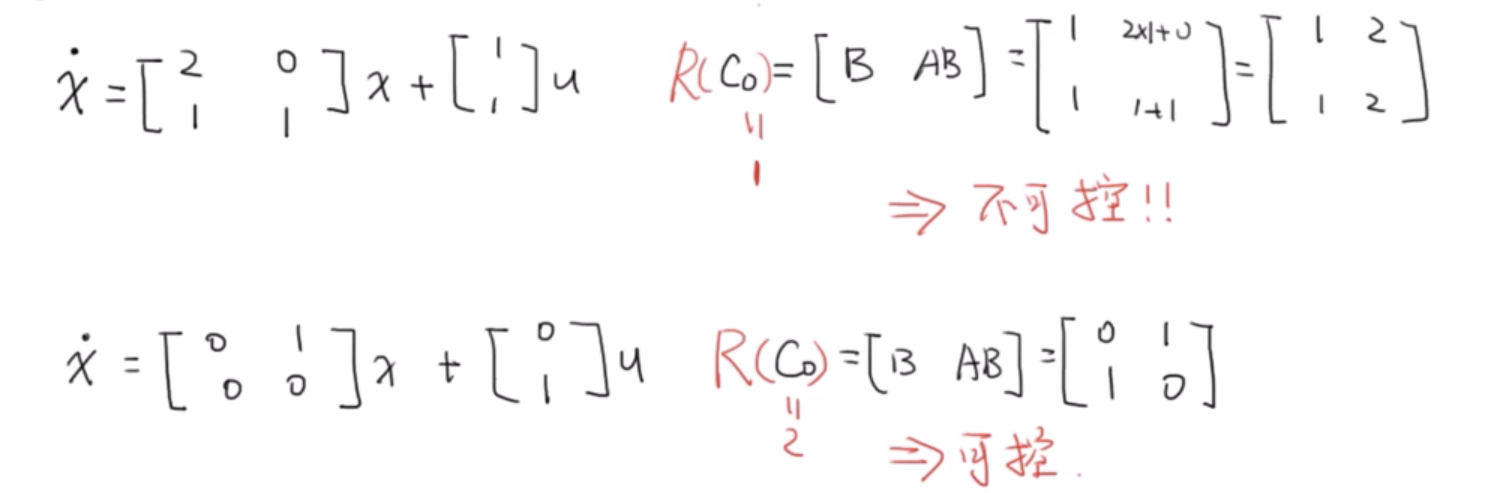 ẋ = [2 0; 1 1] x + [1; 1] u R(C₀) = [B AB] = [1 2×1+0; 1 1+1] = [1 2; 1 2]
= 1
⇒ 不可控!!
ẋ = [0 1; 0 0] x + [0; 1] u R(C₀) = [B AB] = [0 1; 1 0]
= 2
⇒ 可控.